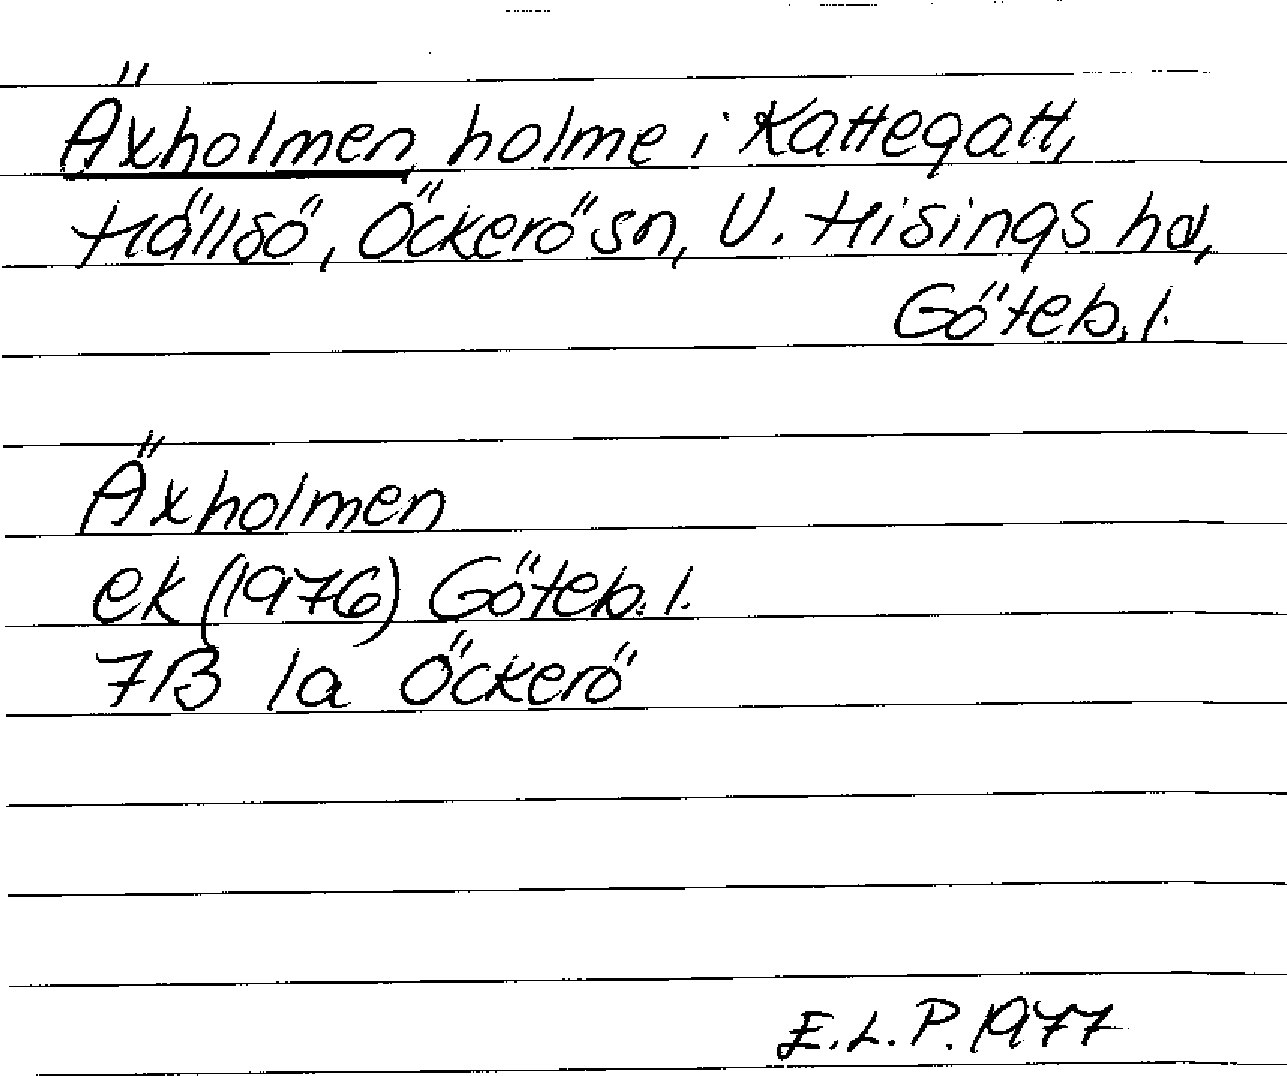 Äxholmen, holme i Kattegatt,
Hällsö, Öckerö sn, V. Hisings hd,
Göteb. l.
Äxholmen
ek (1976) Göteb. l.
7B 1a Öckerö
E.L.P. 1977